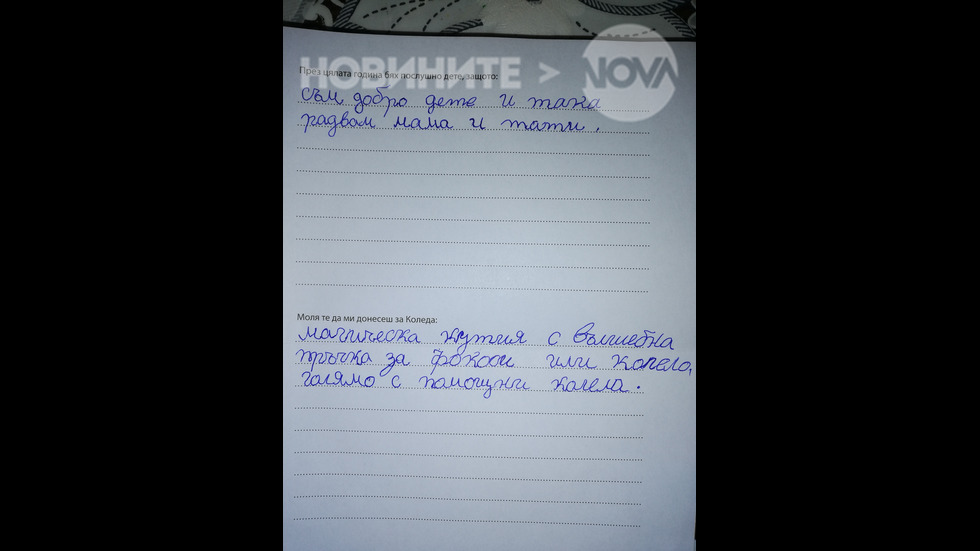 НОВИНИТЕ > NOVA
През цялата година бях послушно дете, защото:
съм добро дете и така
радвам мама и тати.
Моля те да ми донесеш за Коледа:
магическа кутия с вълшебна
пръчка за фокоси или колело,
голямо с помощни колела.